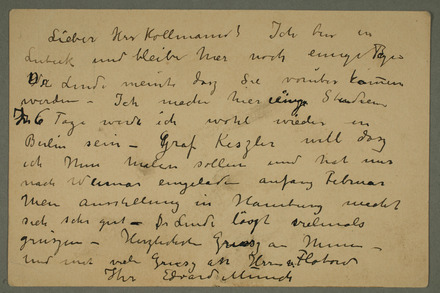 Lieber Herr Kollmann! Ich bin in
Lübeck und bleibe hier noch einige Tage
Dr Linde meinte dasz Sie vorüber kommen
werden – Ich mache hier einige Studien
In 6 Tage werde ich wohl wieder in
Berlin sein – Graf Keszler will dasz
ich ihm malen sollen und hat uns
nach Weimar eingeladen anfang Februar
Men ausstellung in Hamburg macht
sich sehr gut – Dr Linde läszt vielmals
grüszen – Herzlichste Grusz an Ihnen –
und mit viele Grusz an Herrn v Flotow
Ihr Edvard Munch